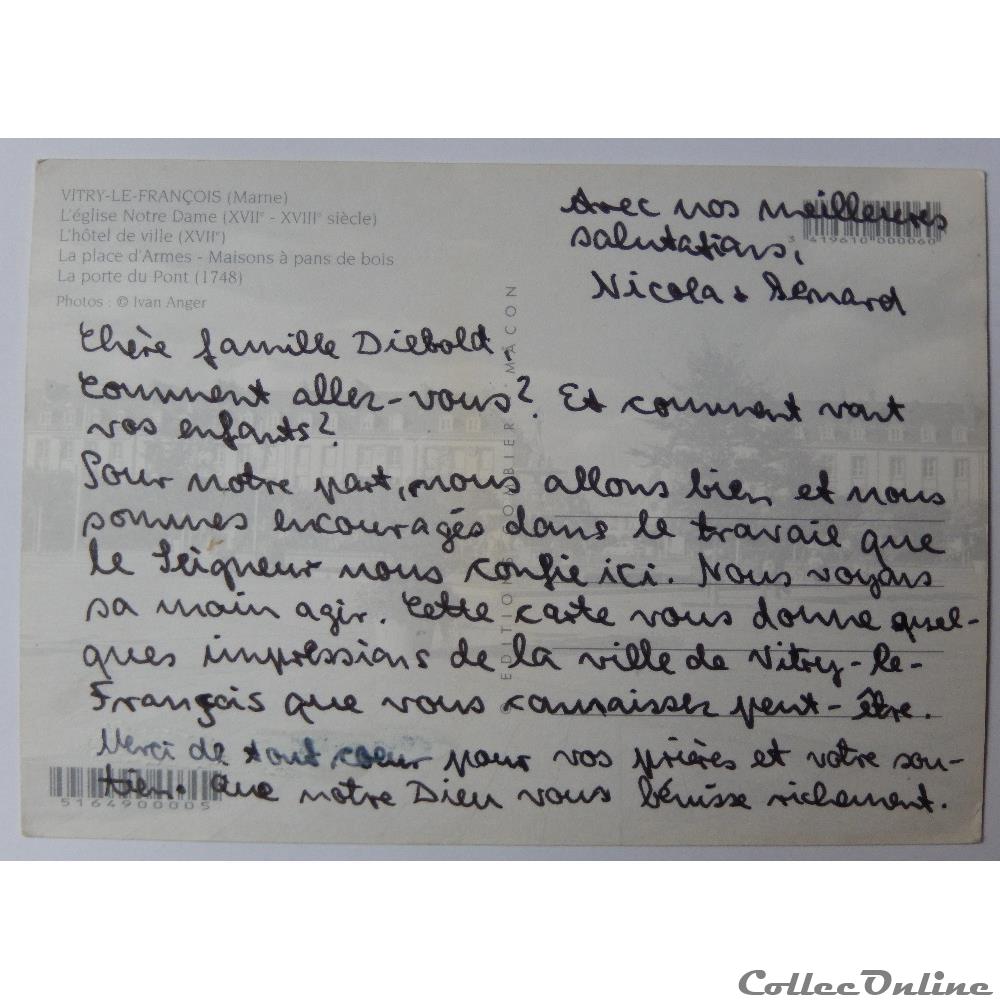 VITRY-LE-FRANÇOIS (Marne)
L'église Notre Dame (XVIIe - XVIIIe siècle)
L'hôtel de ville (XVIIe)
La place d'Armes - Maisons à pans de bois
La porte du Pont (1748)
Photos : © Ivan Anger
Chère famille Diebold,
Comment allez-vous? Et comment vont
vos enfants?
Pour notre part, nous allons bien et nous
sommes encouragés dans le travail que
le Seigneur nous confie ici. Nous voyons
sa main agir. Cette carte vous donne quel-
ques impressions de la ville de Vitry-le-
François que vous connaissez peut-être.
Merci de tout coeur pour vos prières et votre sou-
tien. Que notre Dieu vous bénisse richement.
Avec nos meilleures
salutations,
Nicola & Bernard
3 419610 000060
5164900005
EDITIONS COMBIER MACON
CollecOnline